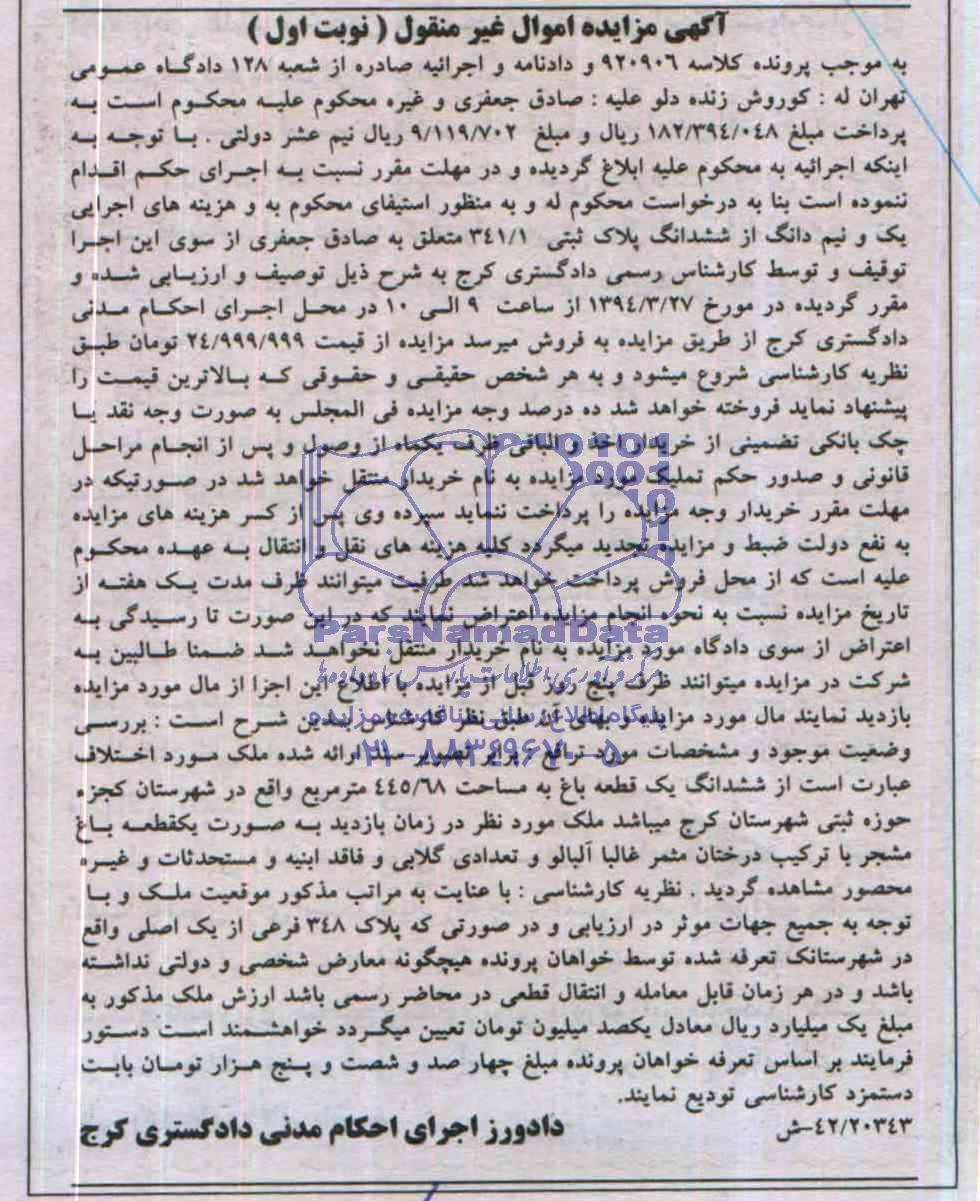 آگهی مزایده اموال غیر منقول ( نوبت اول )
به موجب پرونده کلاسه ۹۲۰۹۰۶ و دادنامه و اجرائیه صادره از شعبه ۱۲۸ دادگاه عمومی
تهران له : کوروش زنده دلو علیه : صادق جعفری و غیره محکوم علیه محکوم است به
پرداخت مبلغ ۱۸۲/۳۹٤/۰٤۸ ریال و مبلغ ۹/۱۱۹/۷۰۲ ریال نیم عشر دولتی . با توجه به
اینکه اجرائیه به محکوم علیه ابلاغ گردیده و در مهلت مقرر نسبت به اجرای حکم اقدام
ننموده است بنا به درخواست محکوم له و به منظور استیفای محکوم به و هزینه های اجرایی
یک و نیم دانگ از ششدانگ پلاک ثبتی ۳٤۱/۱ متعلق به صادق جعفری از سوی این اجرا
توقیف و توسط کارشناس رسمی دادگستری کرج به شرح ذیل توصیف و ارزیابی شده و
مقرر گردیده در مورخ ۱۳۹٤/۳/۲۷ از ساعت ۹ الی ۱۰ در محل اجرای احکام مدنی
دادگستری کرج از طریق مزایده به فروش میرسد مزایده از قیمت ۲٤/۹۹۹/۹۹۹ تومان طبق
نظریه کارشناسی شروع میشود و به هر شخص حقیقی و حقوقی که بالاترین قیمت را
پیشنهاد نماید فروخته خواهد شد ده درصد وجه مزایده فی المجلس به صورت وجه نقد یا
چک بانکی تضمینی از خریدار اخذ و الباقی ظرف یکماه از وصول و پس از انجام مراحل
قانونی و صدور حکم تملیک مورد مزایده به نام خریدار منتقل خواهد شد در صورتیکه در
مهلت مقرر خریدار وجه مزایده را پرداخت ننماید سپرده وی پس از کسر هزینه های مزایده
به نفع دولت ضبط و مزایده تجدید میگردد کلیه هزینه های نقل و انتقال به عهده محکوم
علیه است که از محل فروش پرداخت خواهد شد طرفیت میتوانند ظرف مدت یک هفته از
تاریخ مزایده نسبت به نحوه انجام مزایده اعتراض نمایند که در این صورت تا رسیدگی به
ParsNamadData
اعتراض از سوی دادگاه مورد مزایده به نام خریدار منتقل نخواهد شد ضمنا طالبین به
مرکز فرآوری اطلاعات پارس نماد داده ها
شرکت در مزایده میتوانند ظرف پنج روز قبل از مزایده با اطلاع این اجرا از مال مورد مزایده
پایگاه اطلاع رسانی مناقصه و مزایده
بازدید نمایند مال مورد مزایده و بهای آن طبق نظر کارشناس بدین شرح است : بررسی
۰۲۱-۸۸۳٤۹٦۷۰-۵
وضعیت موجود و مشخصات مورد ترافع : برابر تصویر سند ارائه شده ملک مورد اختلاف
عبارت است از ششدانگ یک قطعه باغ به مساحت ٤٤٥/٦۸ مترمربع واقع در شهرستان کجزء
حوزه ثبتی شهرستان کرج میباشد ملک مورد نظر در زمان بازدید به صورت یکقطعه باغ
مشجر با ترکیب درختان مثمر غالبا آلبالو و تعدادی گلابی و فاقد ابنیه و مستحدثات و غیره
محصور مشاهده گردید . نظریه کارشناسی : با عنایت به مراتب مذکور موقعیت ملک و با
توجه به جمیع جهات موثر در ارزیابی و در صورتی که پلاک ۳٤۸ فرعی از یک اصلی واقع
در شهرستانک تعرفه شده توسط خواهان پرونده هیچگونه معارض شخصی و دولتی نداشته
باشد و در هر زمان قابل معامله و انتقال قطعی در محاضر رسمی باشد ارزش ملک مذکور به
مبلغ یک میلیارد ریال معادل یکصد میلیون تومان تعیین میگردد خواهشمند است دستور
فرمایند بر اساس تعرفه خواهان پرونده مبلغ چهار صد و شصت و پنج هزار تومان بابت
دستمزد کارشناسی تودیع نمایند.
٤۲/۲۰۳٤۳-ش
دادورز اجرای احکام مدنی دادگستری کرج